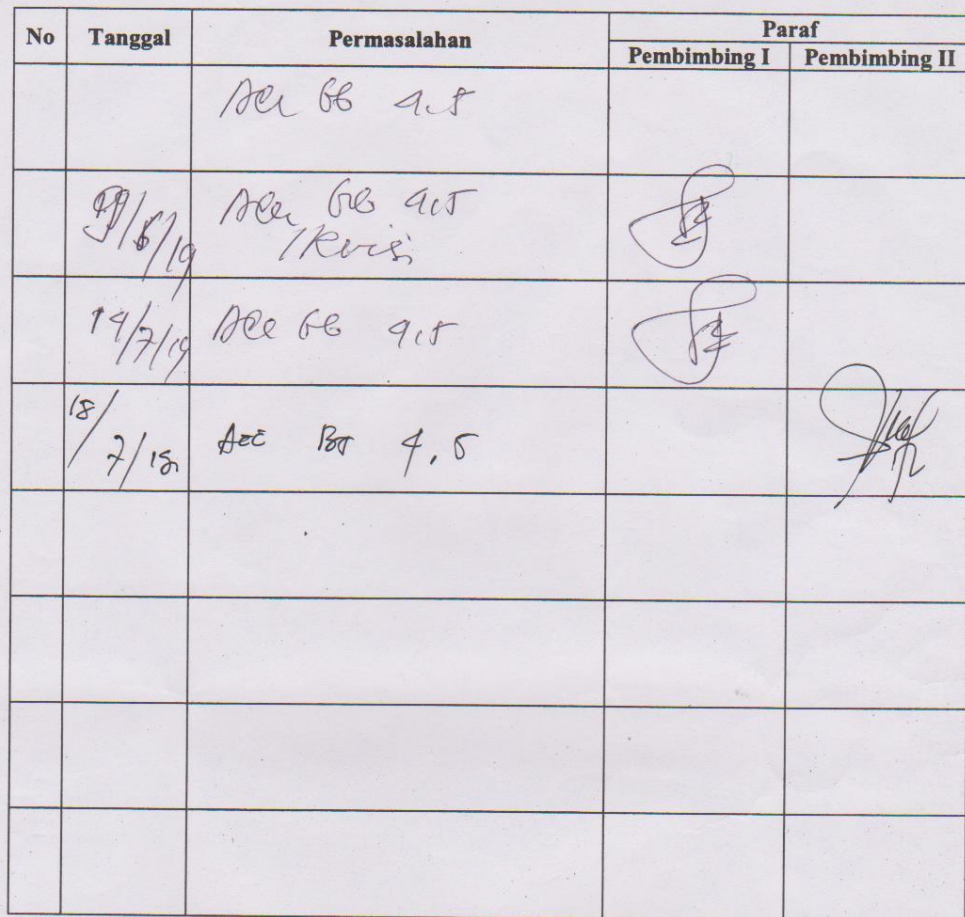 No Tanggal Permasalahan Paraf
Pembimbing I Pembimbing II
Acc 4.5
/19 Acc 4,5
/Revisi
14/7/19 Acc 4,5
18/7/19 Acc 4,5